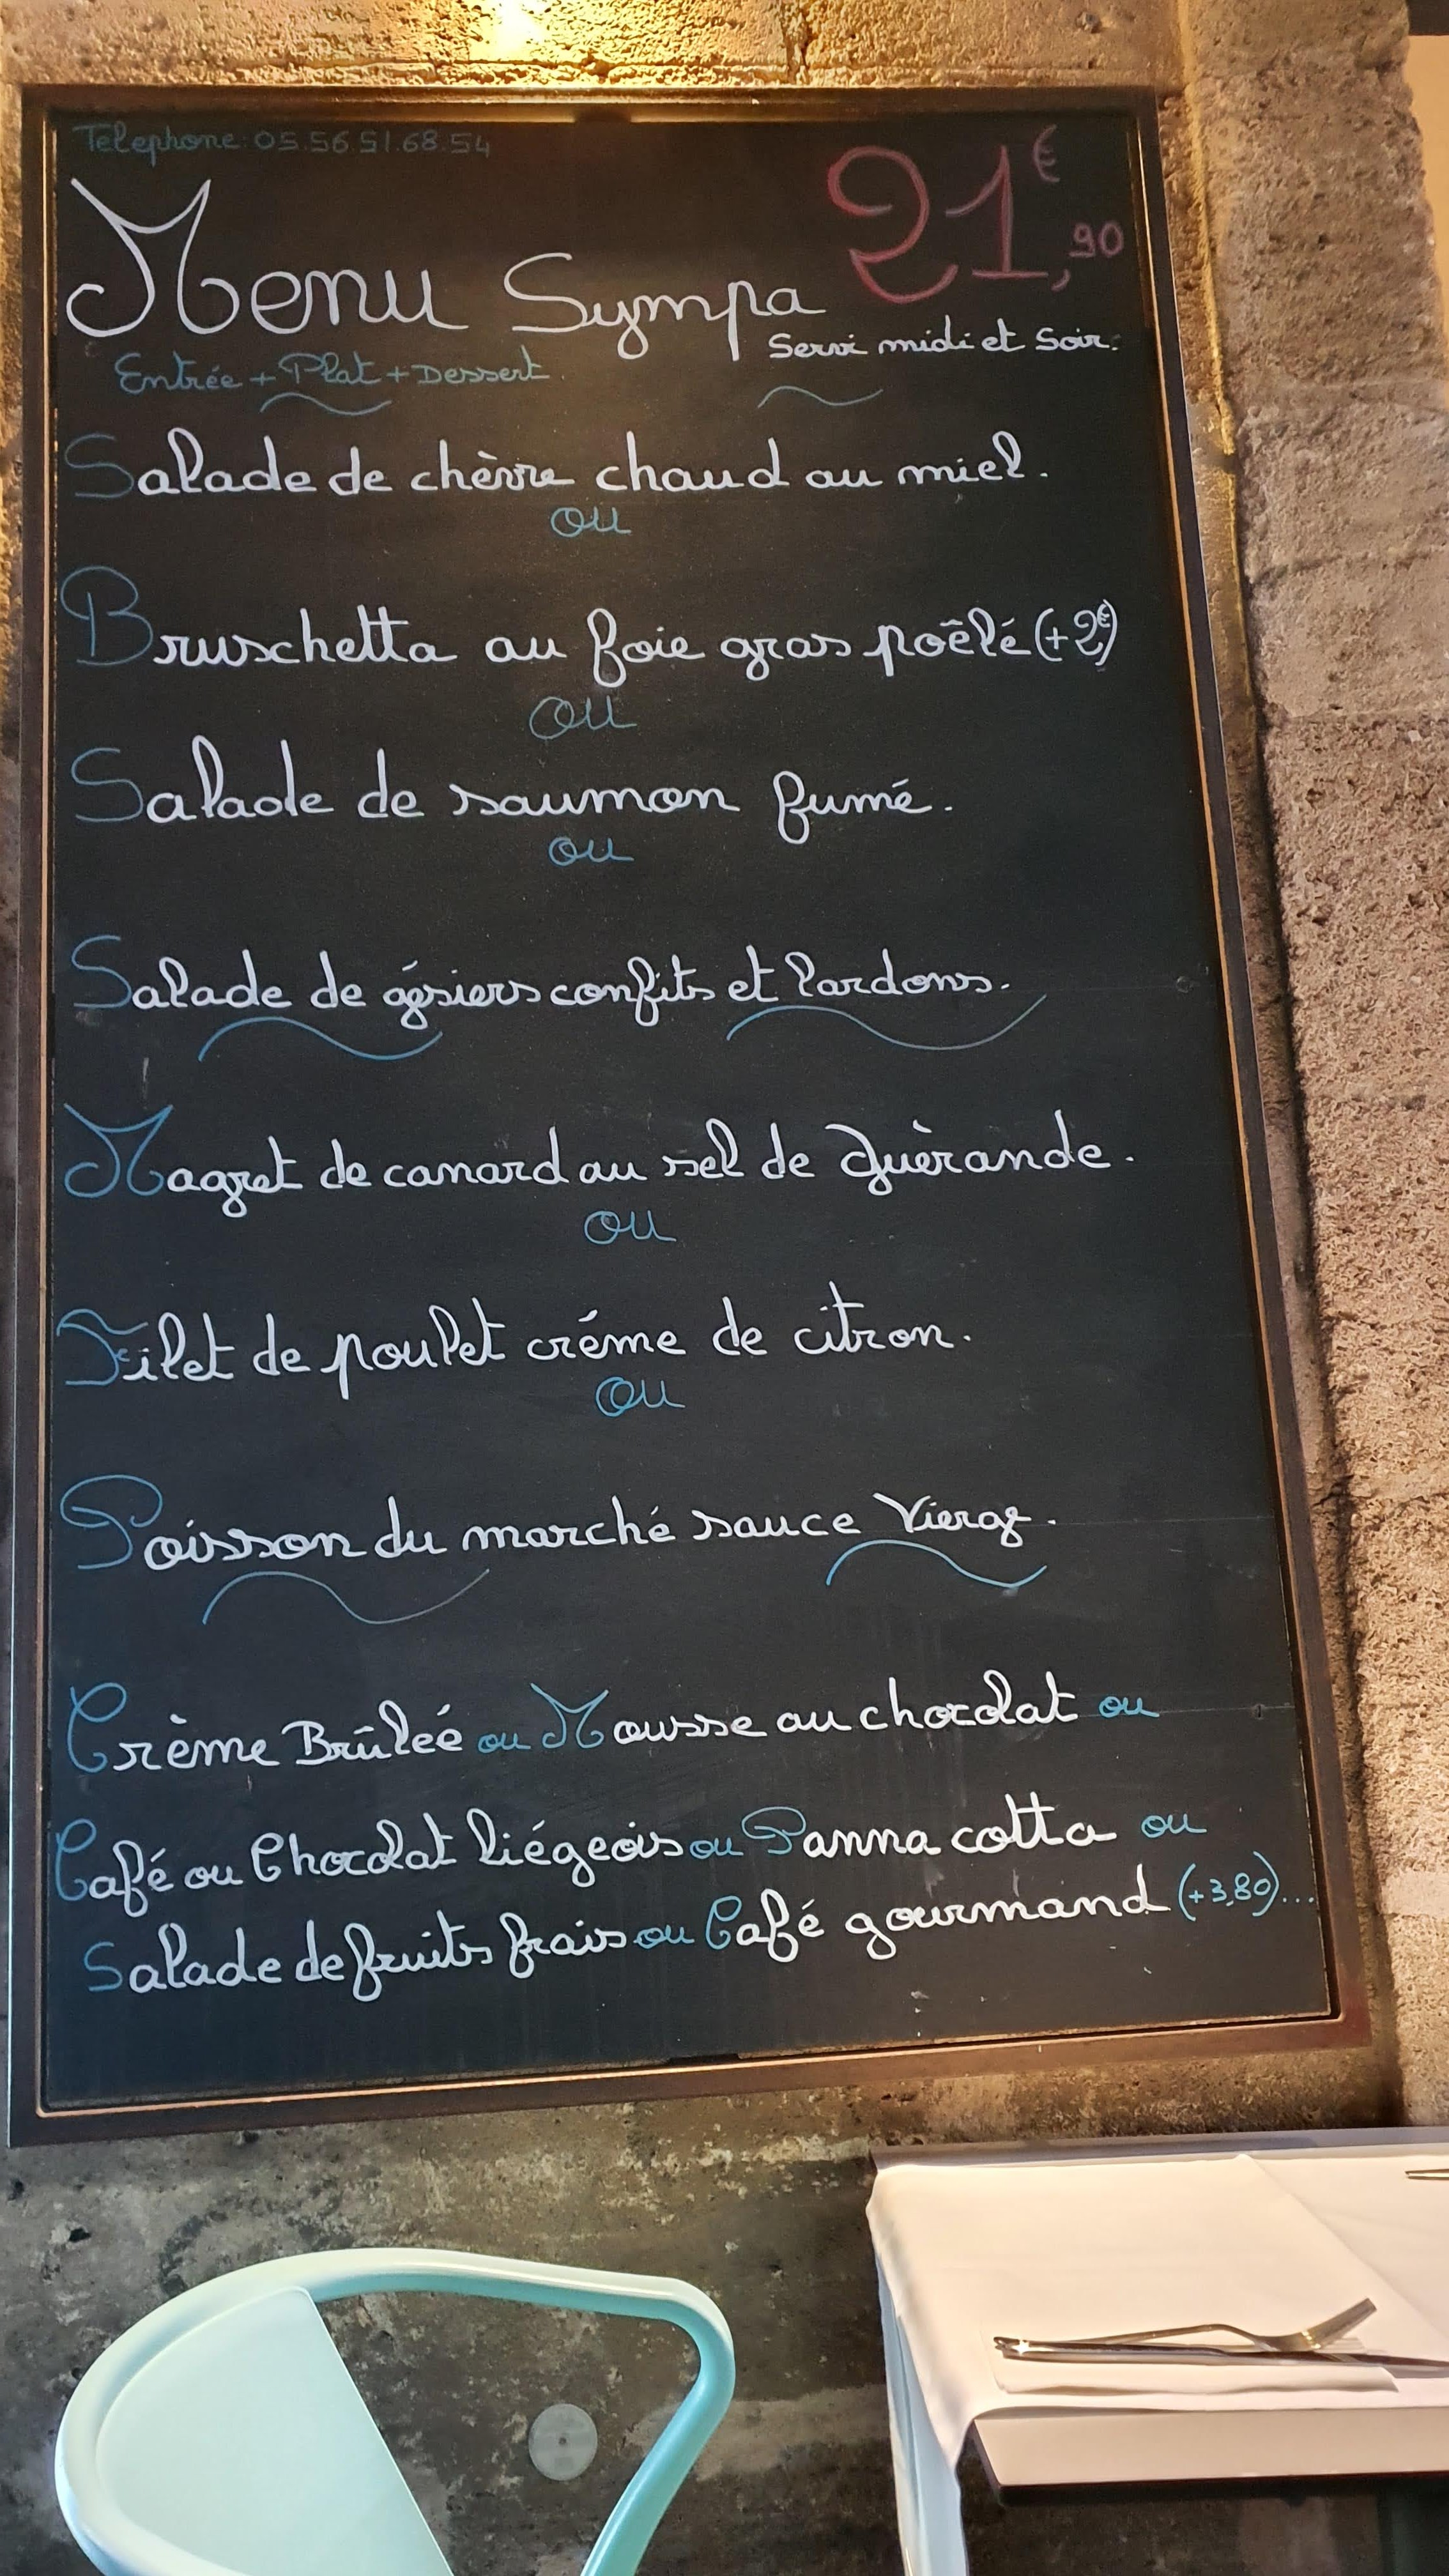 Telephone: 05.56.51.68.54
21€,90
Menu Sympa
Servi midi et Soir.
Entrée + Plat + Dessert.
Salade de chèvre chaud au miel.
ou
Bruschetta au foie gras poêlé (+2€)
ou
Salade de saumon fumé.
ou
Salade de gésiers confits et lardons.
Magret de canard au sel de Guèrande.
ou
Filet de poulet créme de citron.
ou
Poisson du marché sauce Vierge.
Crème Brûleé ou Mousse au chocolat ou
Café ou Chocolat liégeois ou Panna cotta ou
Salade de fruits frais ou Café gourmand (+3,80)...